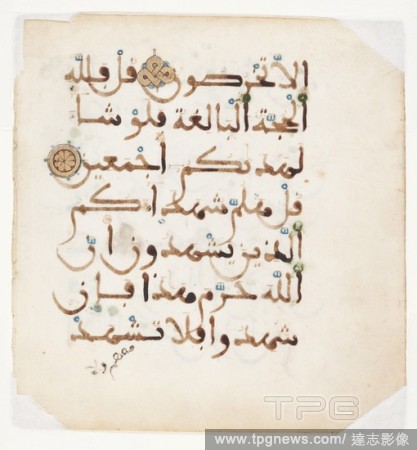 الا تخرصون قل فلله
الحجة البالغة فلو شا
لهديكم اجمعين
قل هلم شهداكم
الذين يشهدون ان
الله حرم هذا فان
شهدوا فلا تشهد
معهم ولا
TPG
www.tpgnews.com/ 達志影像